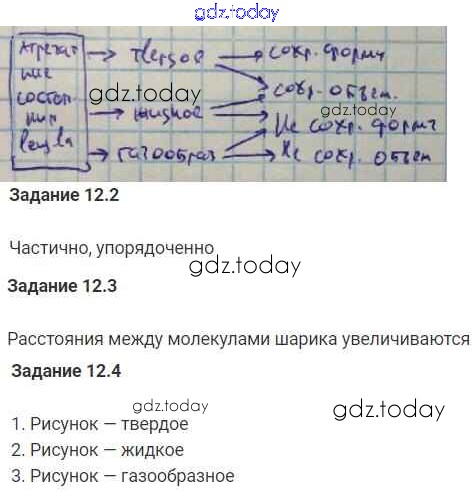 gdz.today
Агрегат → твердое → сохр. форму
ные gdz.today сохр. объем.
состоя- → жидкое → Не сохр. форму
ния
вещ-ва → газообраз → Не сохр. объем
Задание 12.2
Частично, упорядоченно
gdz.today
Задание 12.3
Расстояния между молекулами шарика увеличиваются
Задание 12.4
gdz.today gdz.today
1. Рисунок — твердое
2. Рисунок — жидкое
3. Рисунок — газообразное